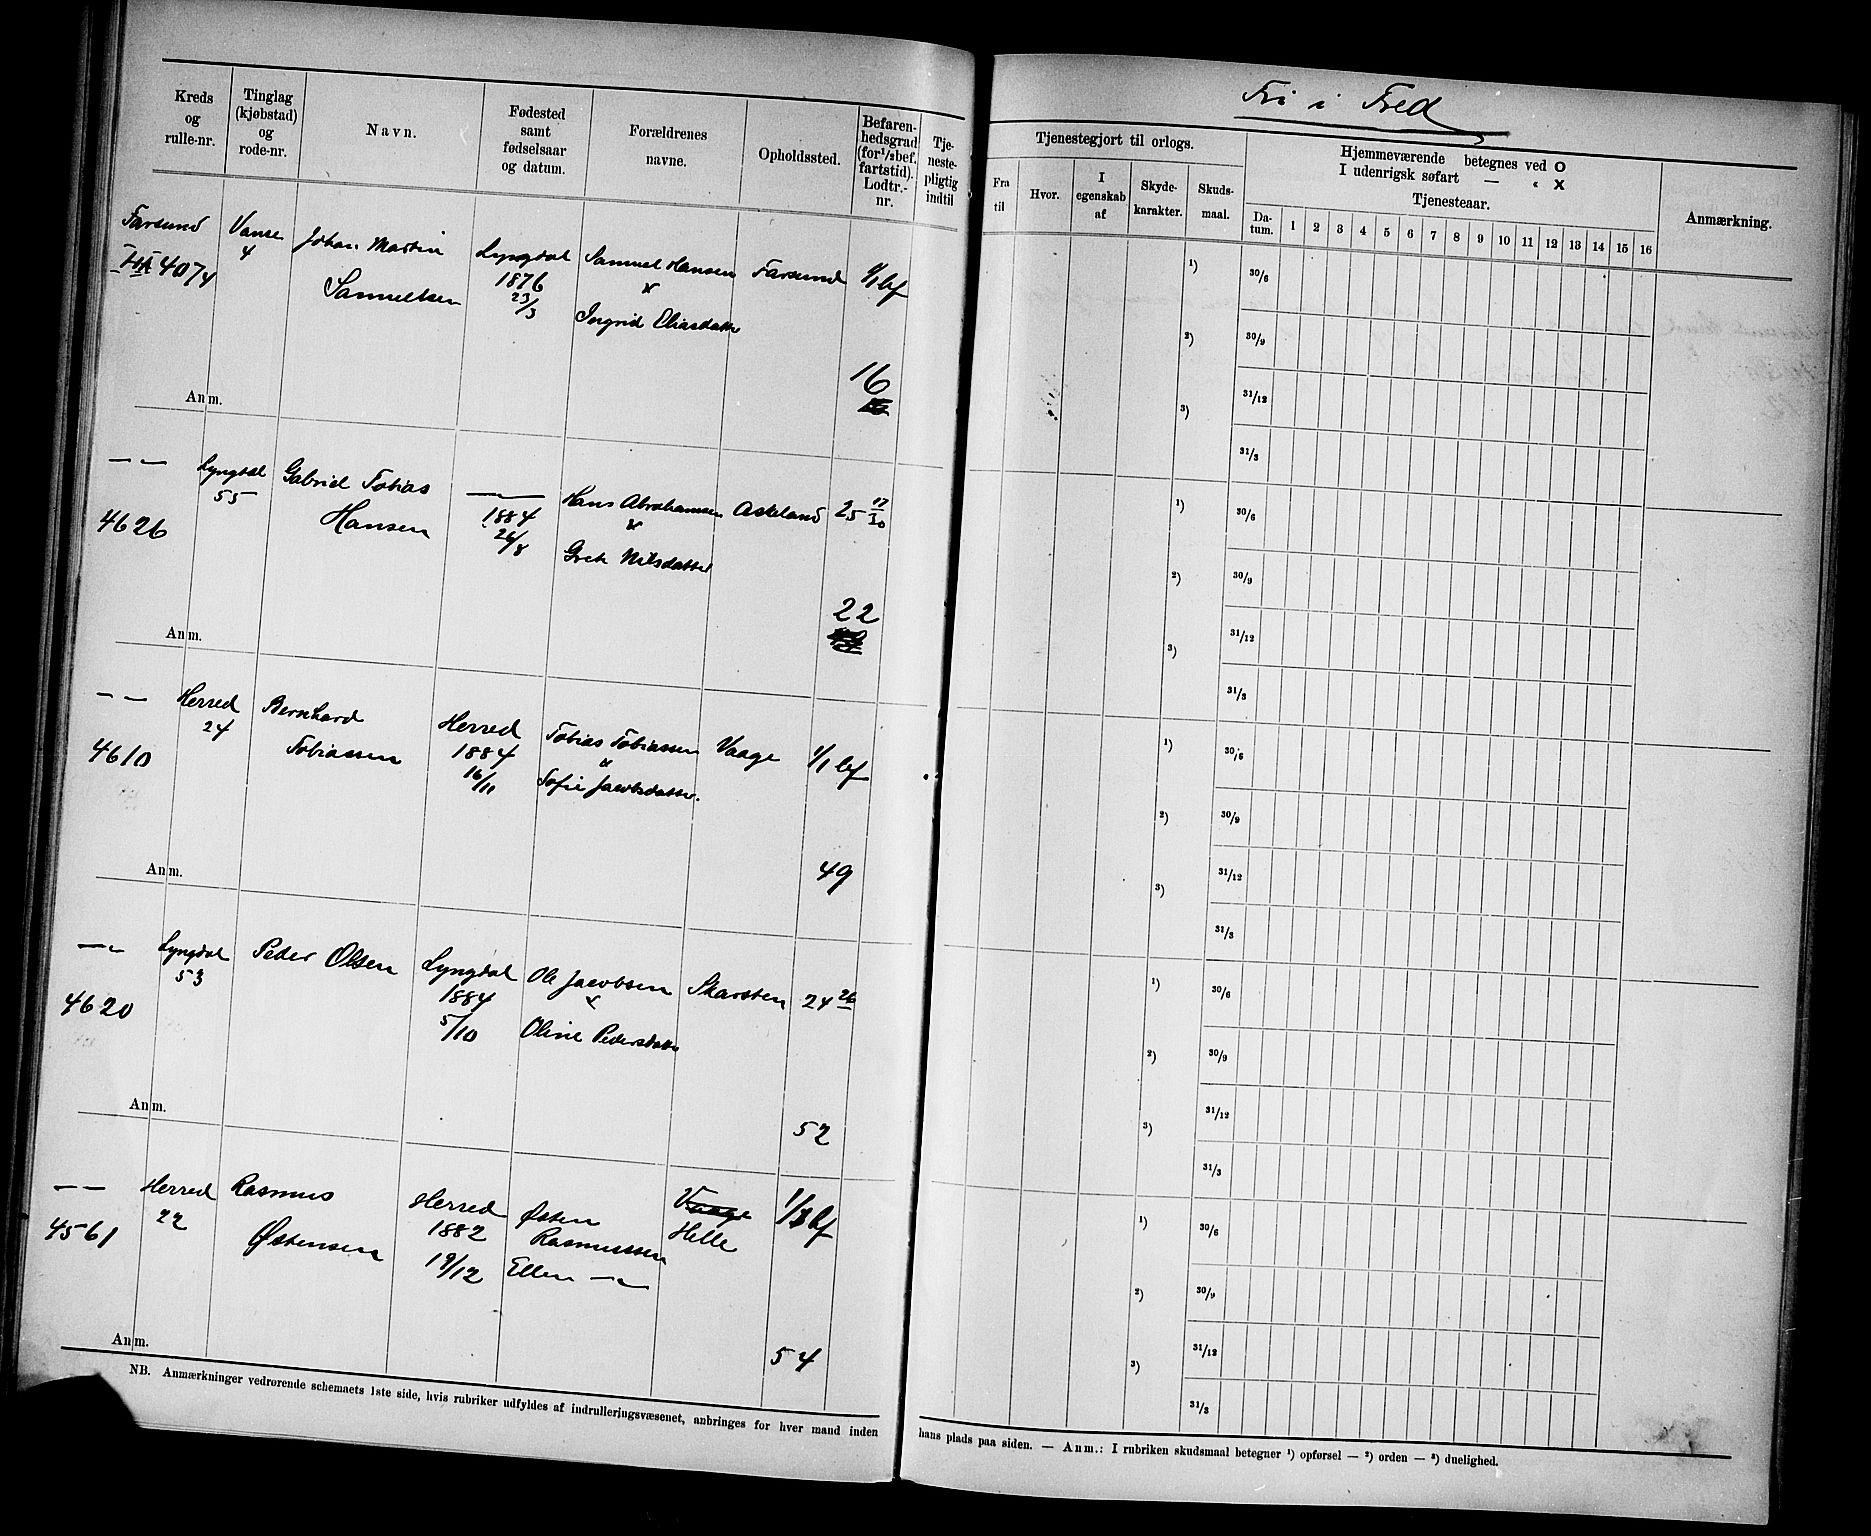 Fri i Fred
Kreds og rulle-nr.
Tinglag (kjøbstad) og rode-nr.
Navn.
Fødested samt fødselsaar og datum.
Forældrenes navne.
Opholdssted.
Befaren-hedsgrad (for 1/2 bef. fartstid). Lodtr.-nr.
Tje-neste-pligtig indtil
Farsund
4074
Vanse
4
Johan Martin
Samuelsen
Lyngdal
1876
23/3
Samuel Hansen
&
Ingrid Eliasdatter
Farsund
1/1 bef
16
Anm.
— „ —
4626
Lyngdal
55
Gabriel Tobias
Hansen
— „ —
1884
26/8
Hans Abrahamsen
&
Grete Nilsdatter
Askeland
25 17/30
22
Anm.
— „ —
4610
Herred
24
Bernhard
Tobiassen
Herred
1884
16/11
Tobias Tobiassen
&
Sofie Jacobsdatter.
Vaage
1/1 bef
49
Anm.
— „ —
4620
Lyngdal
53
Peder Olsen
Lyngdal
1884
5/10
Ole Jacobsen
&
Oline Pedersdatter
Skarsten
24 26
52
Anm.
— „ —
4561
Herred
22
Rasmus
Østensen
Herred
1882
19/12
Østen
Rasmussen
Ellen — „ —
Vaage
Helle
1/1 bf
54
Anm.
NB. Anmærkninger vedrørende schemaets 1ste side, hvis rubriker udfyldes af indrulleringsvæsenet, anbringes for hver mand inden
Tjenestegjort til orlogs.
Fra til
Hvor.
I egenskab af
Skyde-karakter.
Skuds-maal.
Hjemmeværende betegnes ved O
I udenrigsk søfart — „ X
Tjenesteaar.
Da-tum. 1 2 3 4 5 6 7 8 9 10 11 12 13 14 15 16
Anmærkning.
1) 30/6
2) 30/9
31/12
3)
31/3
1) 30/6
2) 30/9
31/12
3)
31/3
1) 30/6
2) 30/9
31/12
3)
31/3
1) 30/6
2) 30/9
31/12
3)
31/3
1) 30/6
2) 30/9
31/12
3)
31/3
hans plads paa siden. — Anm.: I rubriken skudsmaal betegner 1) opførsel — 2) orden — 3) duelighed.